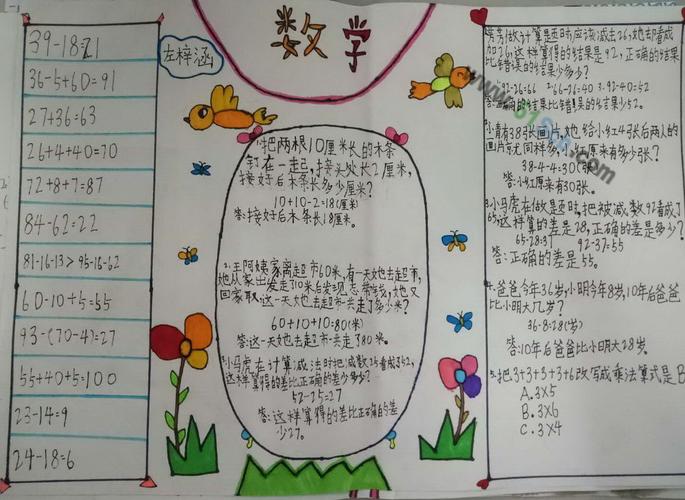 数学
左梓涵
39-18=21
36-5+60=91
27+36=63
26+4+40=70
72+8+7=87
84-62=22
81-16-13>95-16-62
60-10+5=55
93-(70-4)=27
55+40+5=100
23-14=9
24-18=6
1.把两根10厘米长的木条
钉在一起,接头处长2厘米,
接好后木条长多少厘米?
10+10-2=18(厘米)
答:接好后木条长18厘米。
2.王阿姨家离超市60米,有一天她去超市,
她从家出发走了10米后发现忘带钱,她又
回家取这一天她去超市一共走了多少米?
60+10+10=80(米)
答:这一天她去超市一共走了80米。
3.小马虎在计算减法时把减数25看成52,
这样算得的差比正确的差少多少?
52-25=27
答:这样算得的差比正确的差
少27。
加26,这样算得的结果是92,正确的结果
比错误的结果少多少?
92-26=66 2.66-26=40 3.92-40=52
答:正确的结果比错误的结果少52。
小青有38张画片,她给小红4张后两人的
画片就同样多,小红原来有多少张?
38-4-4=30(张)
答:小红原来有30张。
3.小马虎在做题时,把被减数92看成了
65,这样算的差是28,正确的差是多少?
65-28=37 92-37=55
答:正确的差是55。
4.爸爸今年36岁,小明今年8岁,10年后爸爸
比小明大几岁?
36-8=28(岁)
答:10年后爸爸比小明大28岁。
5.把3+3+3+3+6改写成乘法算式是B
A.3X5
B.3X6
C.3X4